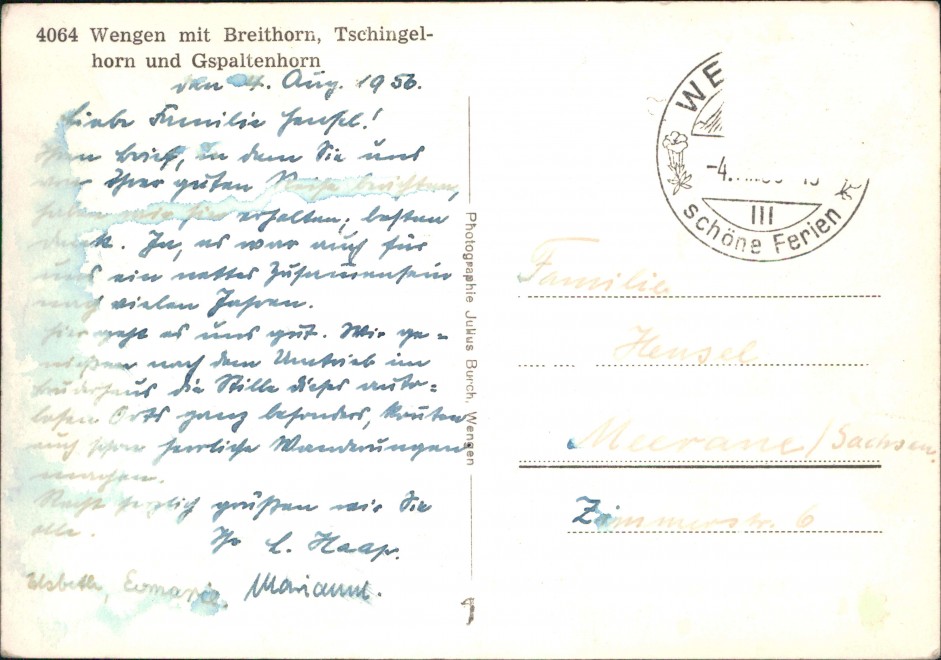 4064 Wengen mit Breithorn, Tschingel-
horn und Gspaltenhorn
den 4. Aug. 1956.
Liebe Familie Hensel!
Ihren Brief, in dem Sie uns
von Ihrer guten Reise berichten,
haben wir hier erhalten; besten
Dank. Ja, es war auch für
uns ein nettes Zusammensein
nach vielen Jahren.
Hier geht es uns gut. Wir ge-
nießen nach dem Umtrieb im
Bruderhaus die Stille dieses auto-
losen Orts ganz besonders, konnten
auch schon herrliche Wanderungen
machen.
Recht herzlich grüßen wir Sie
alle. Ihr
Haap.
Elsbeth, Marianne.
Photographie Julius Burch, Wengen
WE
-4.
III
schöne Ferien
Familie
Hensel
Meerane/Sachsen.
Zimmerstr. 6